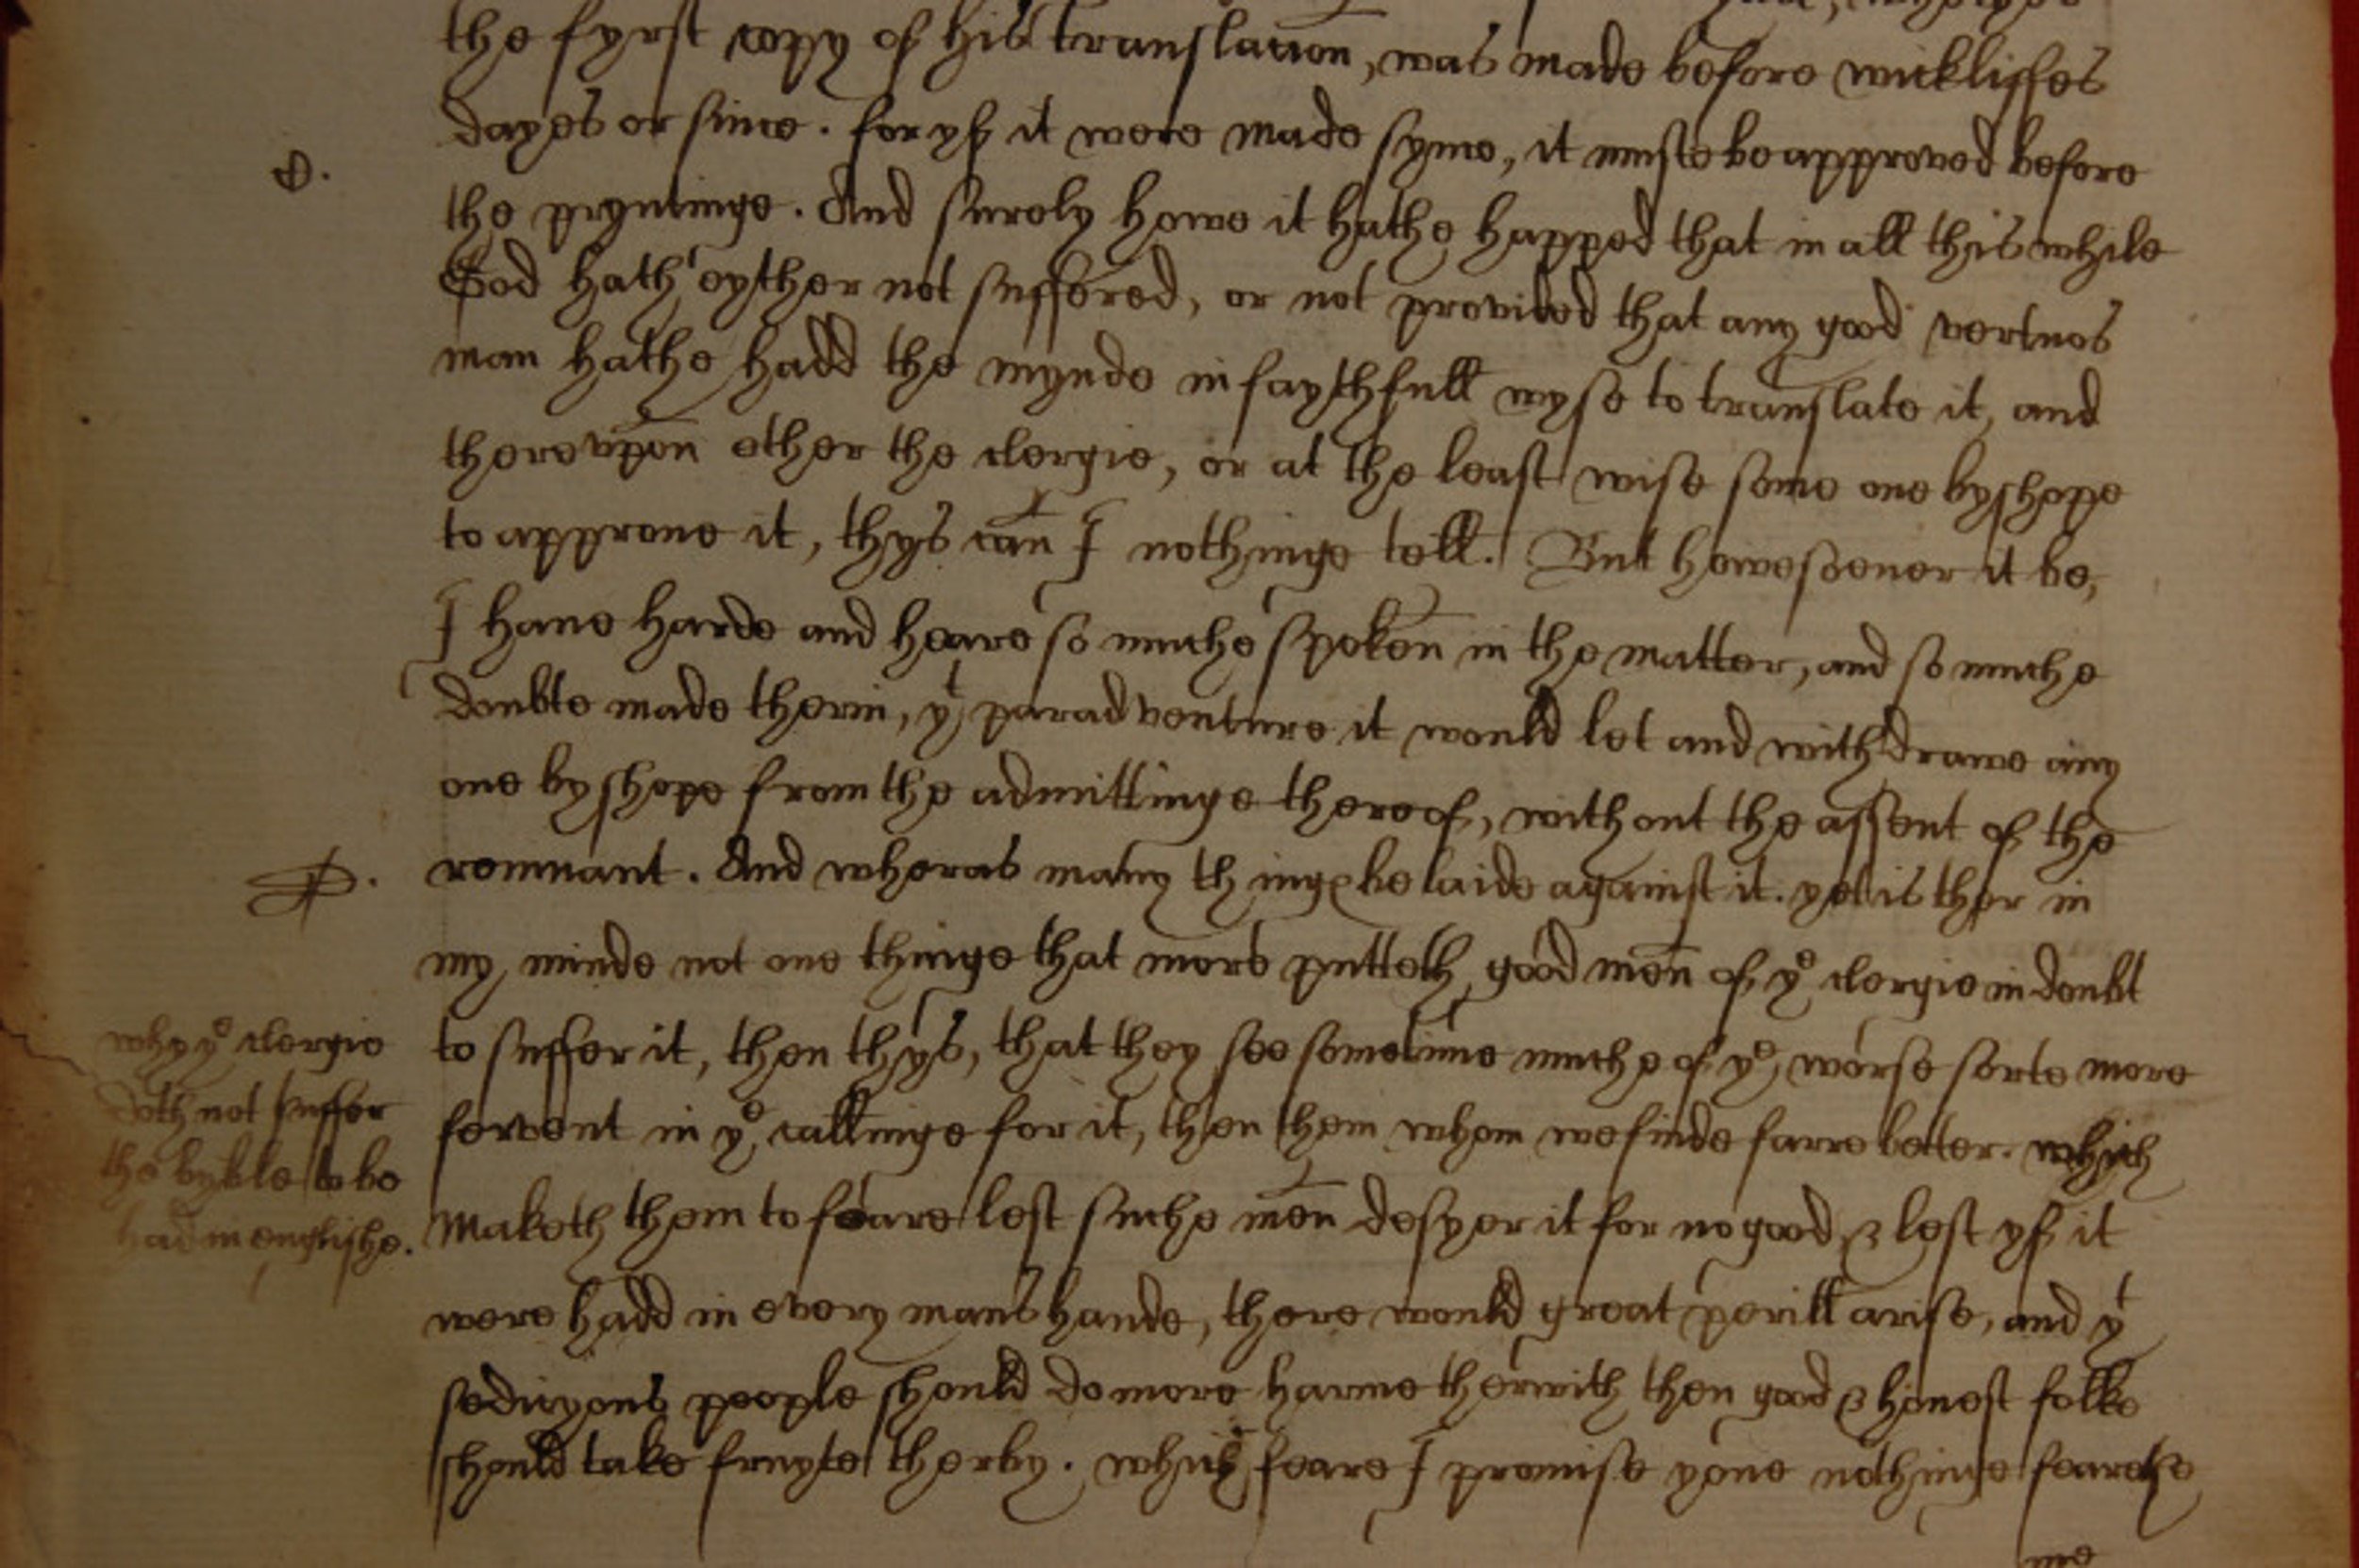 the fyrst copy of his translation, was made before wickliffes
dayes or since. for yf it were made syne, it muste be approved before
D.
the pryntinge. And surely howe it hathe happed that in all this while
God hath eyther not suffered, or not provided that any good vertuos
man hathe hadd the mynde in faythfull wyse to translate it, and
therevpon ether the clergie, or at the least wise some one byshope
to approue it, thys can I nothinge tell. But howesoeuer it be,
I haue harde and heare so muche spoken in the matter, and so muche
doubte made therin, yt paradventure it would let and withdrawe any
one byshope from the admittinge thereof, without the assent of the
remnant. And wheras many thinges be laide against it. yet is ther in
my minde not one thinge that more putteth good men of ye clergie in doubt
to suffer it, then thys, that they see sometime muche of ye worse sorte more
fervent in ye callinge for it, then them whom we finde farre better. which
maketh them to feare lest suche men desyer it for no good & lest yf it
were hadd in every mans hande, there would great perill arise, and yt
sedicyous people should do more harme therwith then good & honest folke
should take fruyte therby. which feare I promise youe nothinge fearethe
me
why ye clergie
doth not suffer
the byble to be
had in englishe.